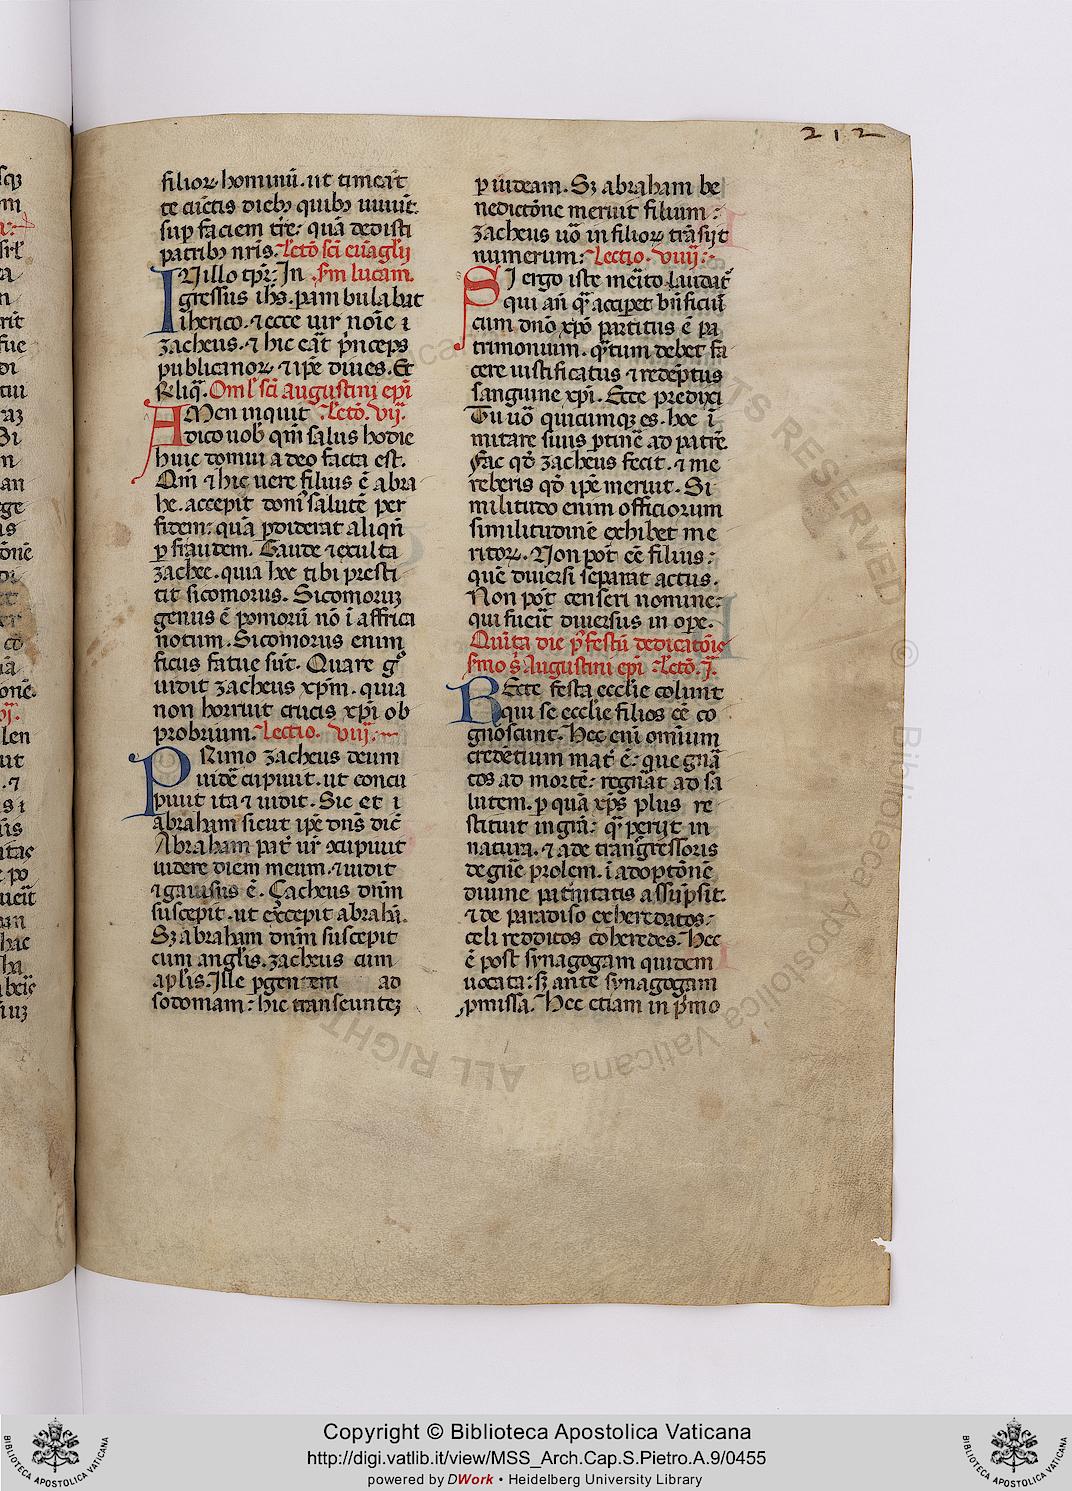 212
filioꝝ hominū. ut timeāt
te cūctis diebꝫ quibꝫ uiuūt.
sup faciem tr̄e: quā dedisti
patribꝫ nr̄is. Lctō sc̄i euāglij
IN illo tp̄r: In sm̄ lucam.
gressus ih̄s. pam bulabat
iherico. ⁊ ecce uir noīe i
zacheus. ⁊ hic eāt p̄nceps
publicanoꝝ ⁊ ip̄e diues. Et
Rliq̄. Oml̄ sc̄i augustini ep̄i
AMen inquit Lctō. vij.
dico uob̄ qm̄ salus hodie
huic domui a deo facta est.
Qm̄ ⁊ hic uere filius ē abra
he. accepit dom̄ salutē per
fidem: quā p̱diderat aliqn̄
ꝑ fraudem. Gaude ⁊ exulta
zachee. quia hec tibi presti
tit sicomorus. Sicomoruꝫ
genus ē pomorū nō ī affrica
notum. Sicomorus enim
ficus fatue sūt. Quare gͦ
uidit zacheus xp̄m. quia
non horruit crucis xp̄i ob
probrium. Lectio. viij.
PRimo zacheus deum
uidē cupiuit. ut concu
piuit ita ⁊ uidit. Sic et i
abraham sicut ip̄e dn̄s dic̄
Abraham pat̄ ur̄ cupiuit
uidere diem meum. ⁊ uidit
⁊ gauisus ē. Çacheus dn̄m
suscepit. ut excepit abrah̄.
Sꝫ abraham dn̄m suscepit
cum angl̄is. zacheus cum
apl̄is. Ille ꝑgentem ad
sodomam: hic transeunteꝫ
ꝑ iudeam. Sꝫ abraham be
nedictōne meruit filium:
zacheus uō in filioꝝ trāsijt
numerum: Lectio. viiij.
SI ergo iste mēito laudat᷑
qui an̄ q̄ accipet bn̄ficiū
cum dn̄o xp̄o partitus ē pa
trimonium. q̄tum debet fa
cere iustificatus ⁊ redēptus
sanguine xp̄i. Ecce predixi
Tu uō quicumqꝫ es. hoc ī
mitare si uis ꝑtinē ad patrē.
Fac qd̄ zacheus fecit. ⁊ me
reberis qd̄ ip̄e meruit. Si
militudo enim officiorum
similitudinē exhibet me
ritoꝝ. Non pōt eē filius:
quē diuersi separat actus.
Non pōt censeri nomine:
qui fueīt diuersus in ope.
Quīta die p̄ festū dedicatōīs
smo s̄ Augustini ep̄i Lctō. j.
REcte festa eccl̄ie colunt
qui se eccl̄ie filios eē co
gnoscunt. Hec eni omium
credētium mat̄ ē: que gn̄a
tos ad mortē: regn̄at ad sa
lutem. ꝑ quā xp̄s plus re
stituit in gr̄a: q̄ perijt in
natura. ⁊ a de trangressoris
degn̄e prolem. ī adoptōnē
diuine pat̄nitatis assūpsit.
⁊ de paradiso exheredatos:
celi redditos coheredes. Hec
ē post synagogam quidem
uocata: sꝫ ante synagogam
ꝓmissa. Hec etiam in p̄mo
Copyright © Biblioteca Apostolica Vaticana
http://digi.vatlib.it/view/MSS_Arch.Cap.S.Pietro.A.9/0455
powered by DWork • Heidelberg University Library